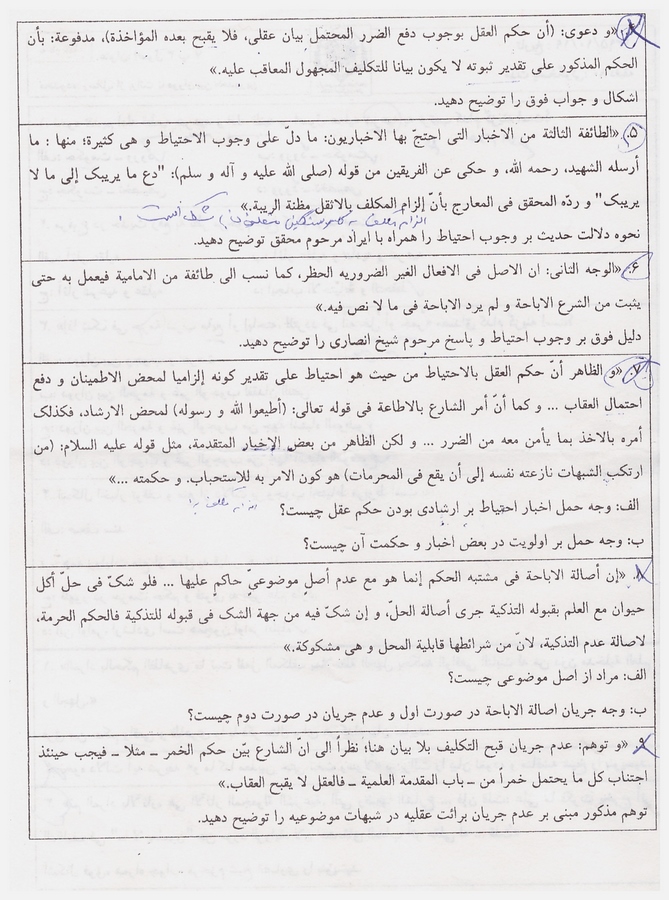 ۴. «و دعوی: (أن حکم العقل بوجوب دفع الضرر المحتمل بیان عقلی، فلا یقبح بعده المؤاخذة)، مدفوعة: بأن
الحکم المذکور علی تقدیر ثبوته لا یکون بیانا للتکلیف المجهول المعاقب علیه.»
اشکال و جواب فوق را توضیح دهید.
۵. «الطائفة الثالثة من الاخبار التی احتجّ بها الاخباریون: ما دلّ علی وجوب الاحتیاط و هی کثیرة؛ منها : ما
أرسله الشهید، رحمه الله، و حکی عن الفریقین من قوله (صلی الله علیه و آله و سلم): "دع ما یریبک إلی ما لا
یریبک" و ردّه المحقق فی المعارج بأنّ إلزام المکلف بالاثقل مظنة الریبة.»
شک است
نحوه دلالت حدیث بر وجوب احتیاط را همراه با ایراد مرحوم محقق توضیح دهید.
۶. «الوجه الثانی: ان الاصل فی الافعال الغیر الضروریه الحظر، کما نسب الی طائفة من الامامیة فیعمل به حتی
یثبت من الشرع الاباحة و لم یرد الاباحة فی ما لا نص فیه.»
دلیل فوق بر وجوب احتیاط و پاسخ مرحوم شیخ انصاری را توضیح دهید.
۷. «و الظاهر أنّ حکم العقل بالاحتیاط من حیث هو احتیاط علی تقدیر کونه إلزامیا لمحض الاطمینان و دفع
احتمال العقاب ... و کما أنّ أمر الشارع بالاطاعة فی قوله تعالی: (أطیعوا الله و رسوله) لمحض الارشاد، فکذلک
أمره بالاخذ بما یأمن معه من الضرر ... و لکن الظاهر من بعض الاخبار المتقدمة، مثل قوله علیه السلام: (من
ارتکب الشبهات نازعته نفسه إلی أن یقع فی المحرمات) هو کون الامر به للاستحباب. و حکمته ...»
الف: وجه حمل اخبار احتیاط بر ارشادی بودن حکم عقل چیست؟
ب: وجه حمل بر اولویت در بعض اخبار و حکمت آن چیست؟
۸. «إن أصالة الاباحة فی مشتبه الحکم إنما هو مع عدم أصل موضوعیّ حاکم علیها ... فلو شکّ فی حلّ أکل
حیوان مع العلم بقبوله التذکیة جری أصالة الحلّ، و إن شکّ فیه من جهة الشک فی قبوله للتذکیة فالحکم الحرمة،
لاصالة عدم التذکیة، لانّ من شرائطها قابلیة المحل و هی مشکوکة.»
الف: مراد از اصل موضوعی چیست؟
ب: وجه جریان اصالة الاباحة در صورت اول و عدم جریان در صورت دوم چیست؟
۹. «و توهم: عدم جریان قبح التکلیف بلا بیان هنا؛ نظراً الی انّ الشارع بیّن حکم الخمر ــ مثلا ــ فیجب حینئذ
اجتناب کل ما یحتمل خمراً من ــ باب المقدمة العلمیة ــ فالعقل لا یقبح العقاب.»
توهم مذکور مبنی بر عدم جریان برائت عقلیه در شبهات موضوعیه را توضیح دهید.